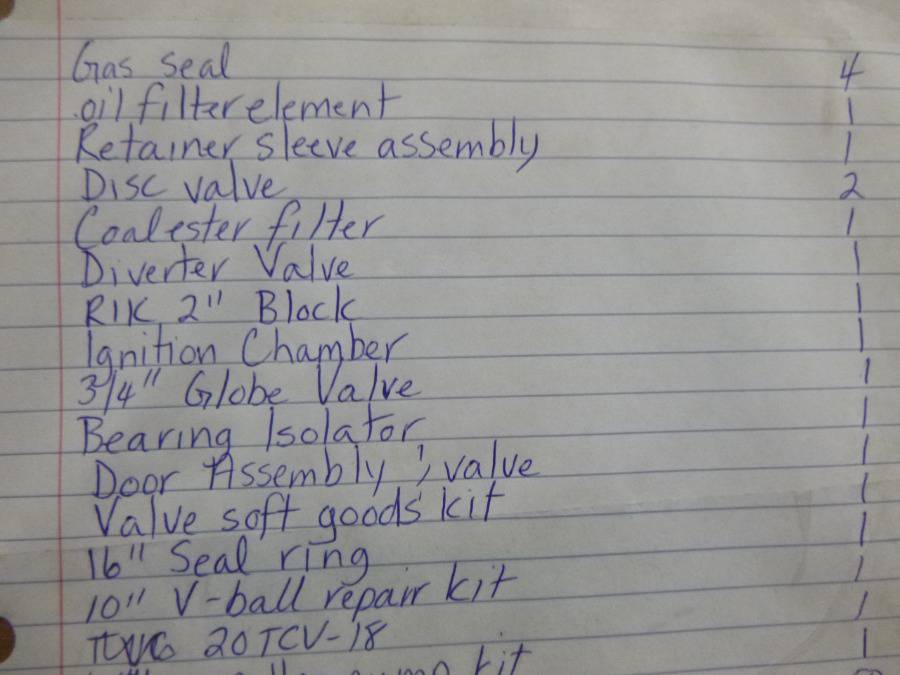 Gas seal 4
oil filter element 1
Retainer sleeve assembly 1
Disc valve 2
Coalester filter 1
Diverter Valve 1
RIK 2" Block 1
Ignition Chamber 1
3/4" Globe Valve 1
Bearing Isolator 1
Door Assembly ; valve 1
Valve soft goods kit 1
16" Seal ring 1
10" V-ball repair kit 1
20TCV-18 1
kit 1